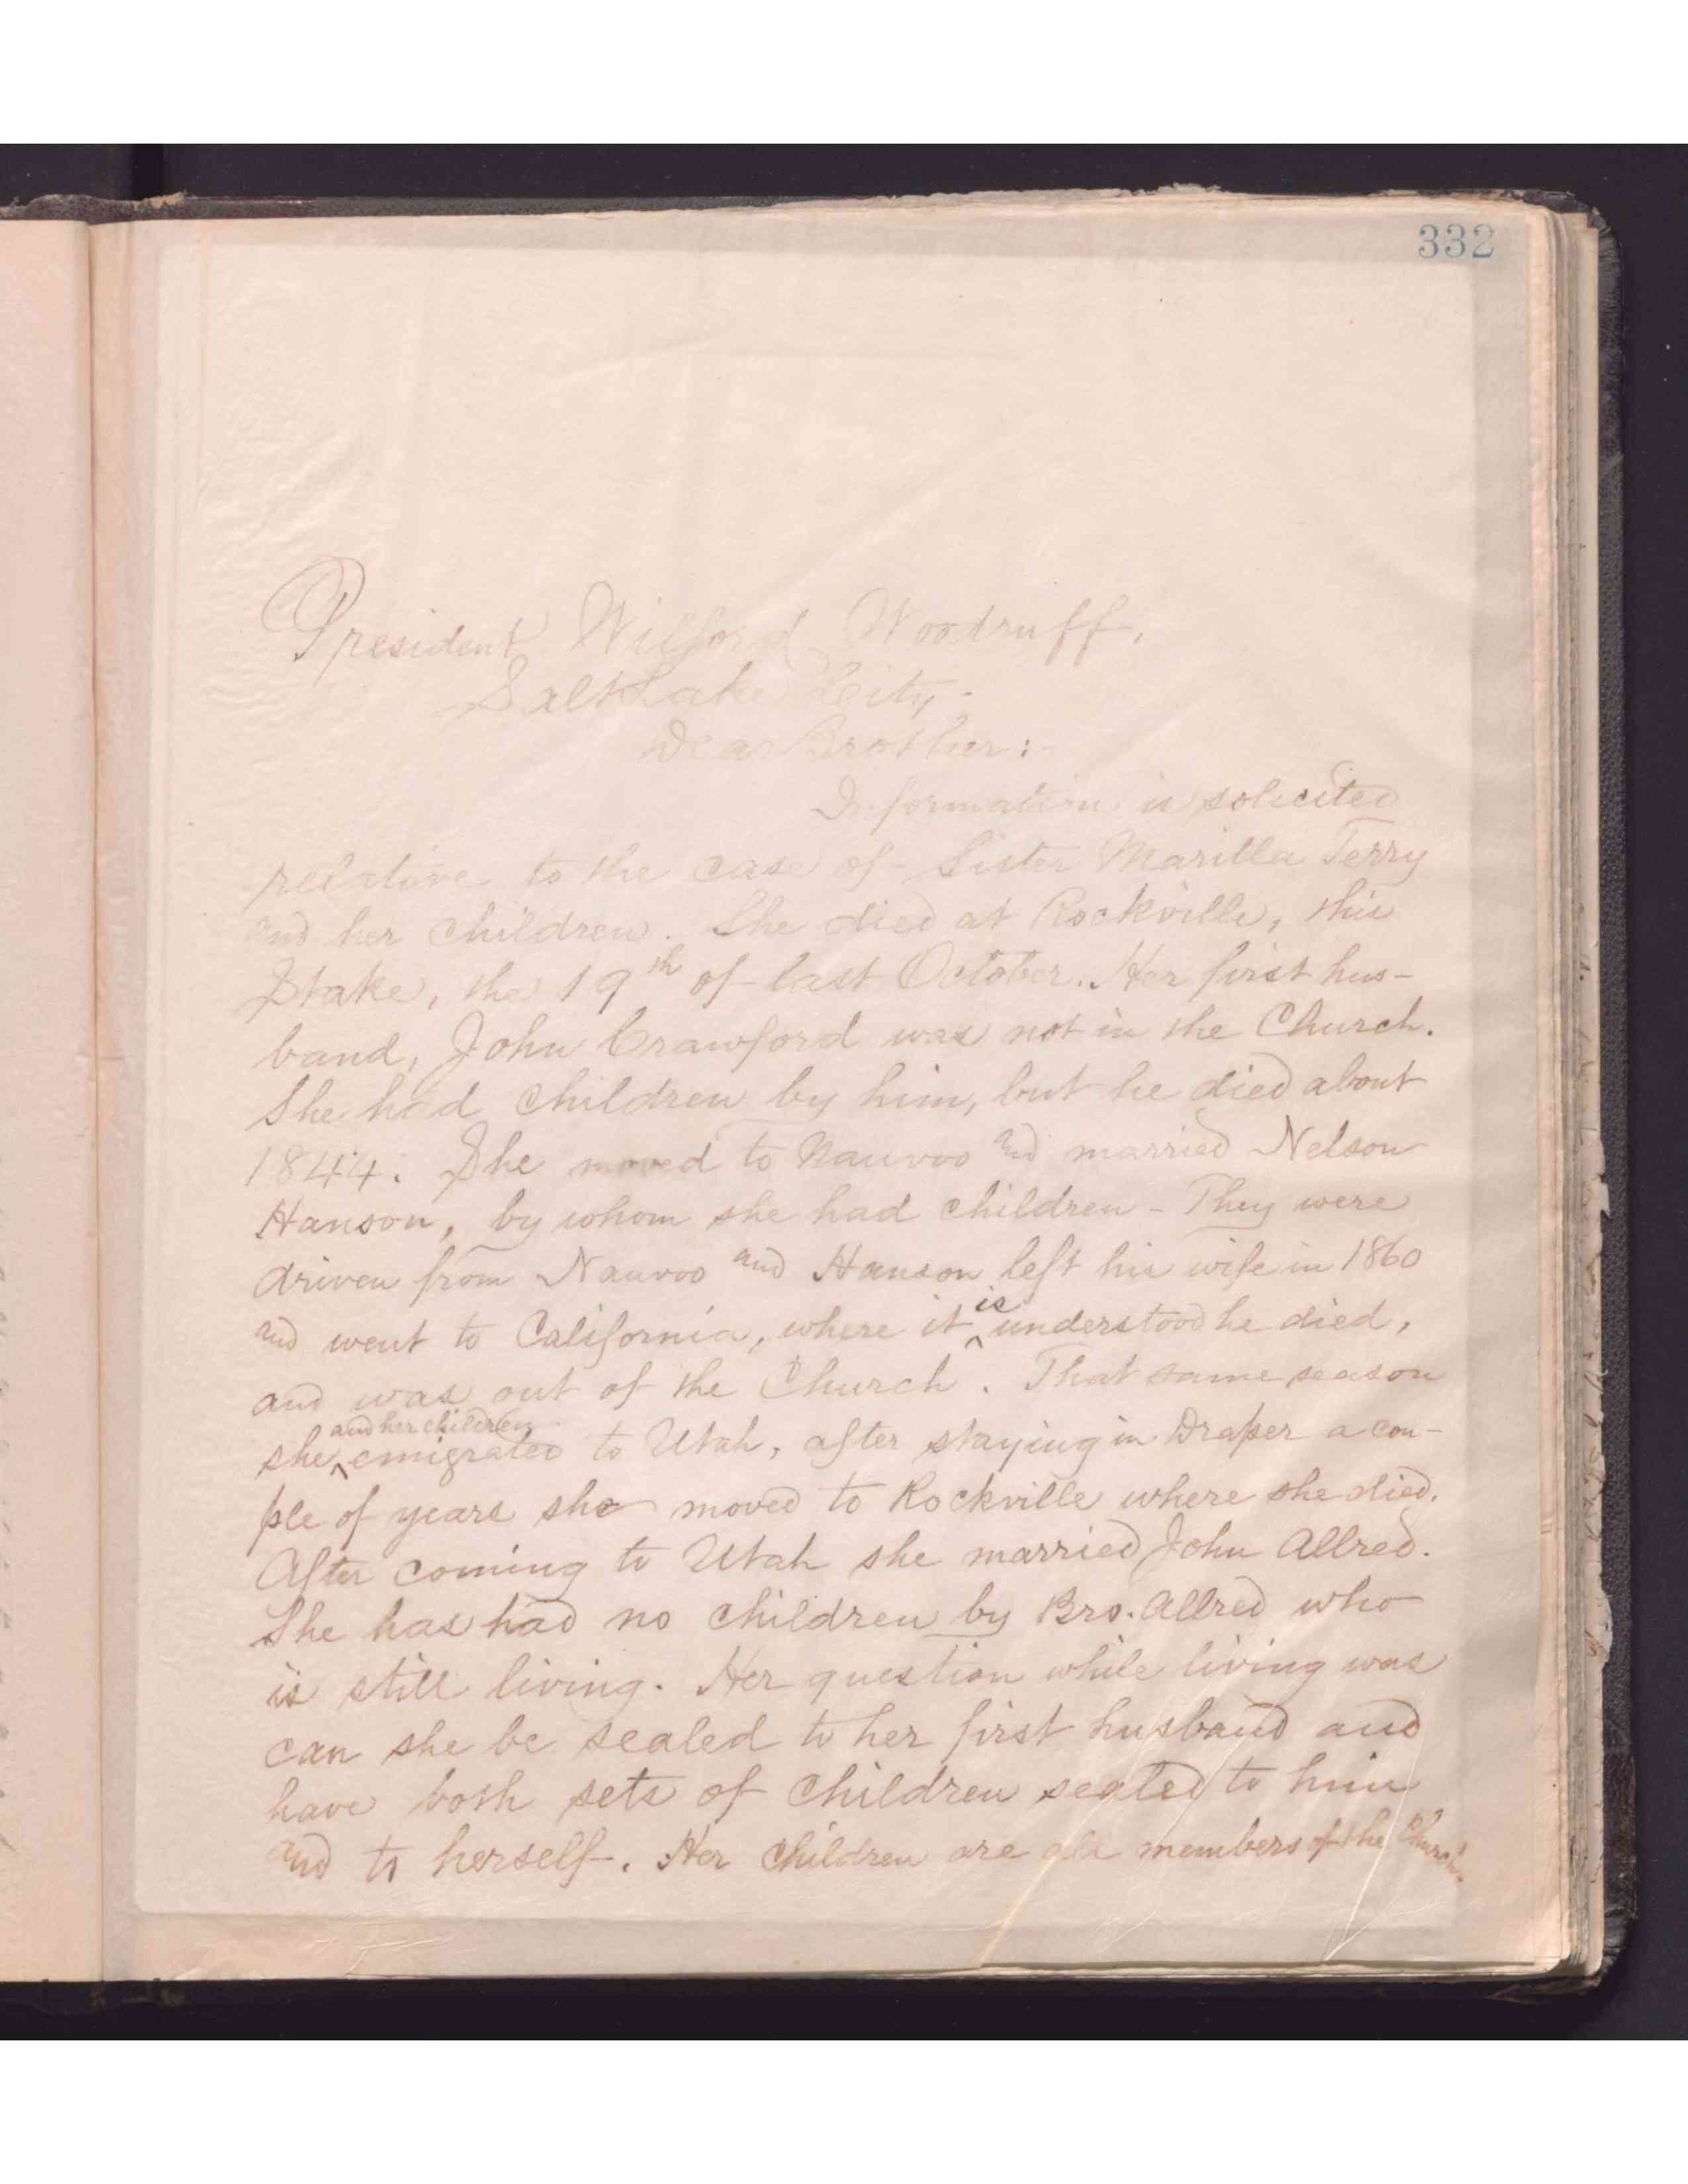 332
President Wilford Woodruff,
Salt Lake City.
Dear Brother:-
Information is solicited
relative to the case of Sister Marilla Terry
and her children. She died at Rockville, this
Stake, the 19th of last October. Her first hus-
band, John Crawford was not in the Church.
She had children by him, but he died about
1844. She moved to Nauvoo and married Nelson
Hanson, by whom she had children - They were
driven from Nauvoo and Hanson left his wife in 1860
and went to California, where it ^is understood he died,
and was out of the Church. That same season
she ^and her children emigrated to Utah, after staying in Draper a cou-
ple of years she moved to Rockville where she died.
After coming to Utah she married John Allred.
She has had no children by Bro. Allred who
is still living. Her question while living was
can she be sealed to her first husband and
have both sets of children sealed to him
and to herself. Her children are all members of the Church.